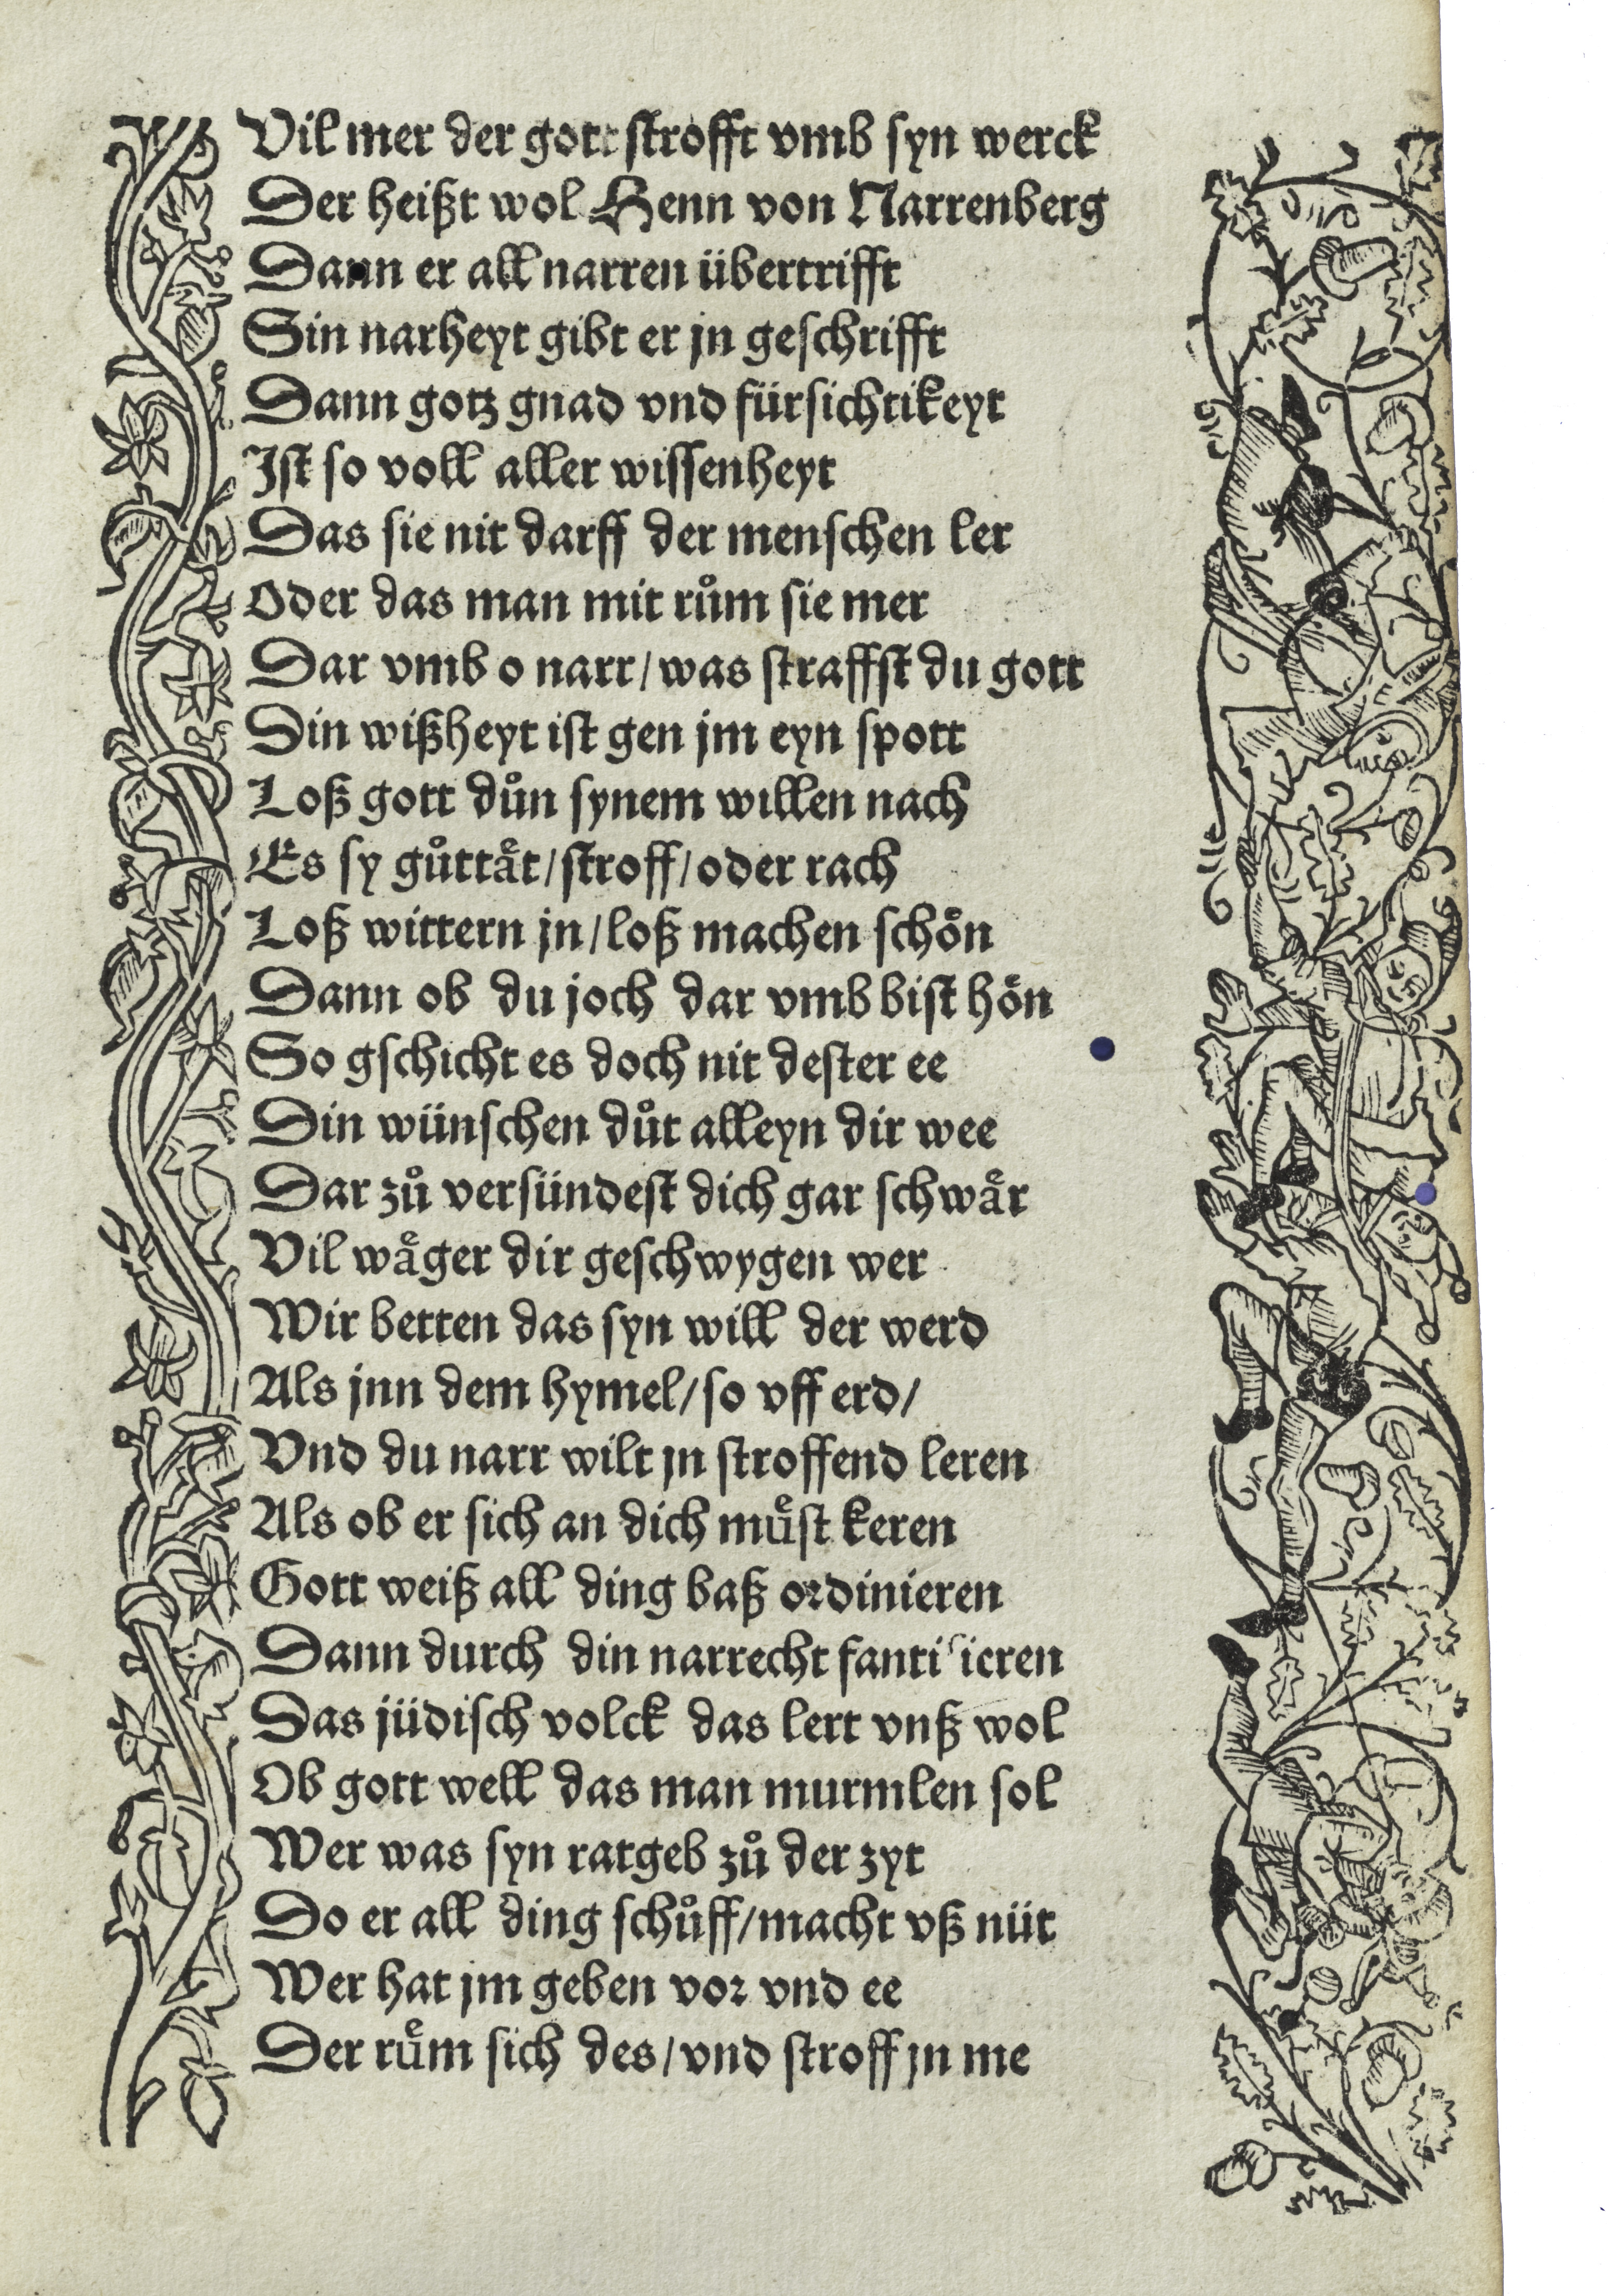 Vil mer der gott strofft vmb syn werck
Der heißt wol Henn von Narrenberg
Dann er all narren übertrifft
Sin narheyt gibt er jn geschrifft
Dann gotz gnad vnd fürsichtikeyt
Ist so voll aller wissenheyt
Das sie nit darff der menschen ler
Oder das man mit rům sie mer
Dar vmb o narr / was straffst du gott
Din wißheyt ist gen jm eyn spott
Loß gott důn synem willen nach
Es sy gůttaͤt / stroff / oder rach
Loß wittern jn / loß machen schoͤn
Dann ob du joch dar vmb bist hoͤn
So gschicht es doch nit dester ee
Din wünschen důt alleyn dir wee
Dar zů versündest dich gar schwaͤr
Vil waͤger dir geschwygen wer
Wir betten das syn will der werd
Als jnn dem hymel / so vff erd /
Vnd du narr wilt jn stroffend leren
Als ob er sich an dich muͤst keren
Gott weiß all ding baß ordinieren
Dann durch din narrecht fantisieren
Das jüdisch volck das lert vnß wol
Ob gott well das man murmlen sol
Wer was syn ratgeb zů der zyt
Do er all ding schůff / macht vß nüt
Wer hat jm geben vor vnd ee
Der ruͤm sich des / vnd stroff jn me